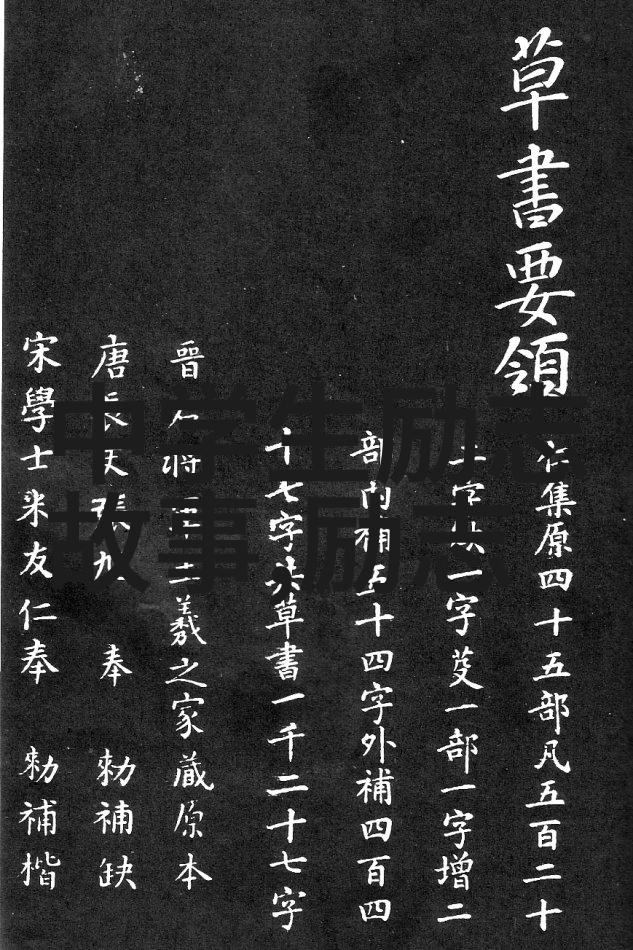 草書要領
集原四十五部凡五百二十
字一字芟一部一字增二
部內補五十四字外補四百四
十七字共草書一千二十七字
晉右將軍王羲之家藏原本
唐長史張旭 奉 勅補缺
宋學士米友仁奉 勅補楷
中学生励志
故事励志